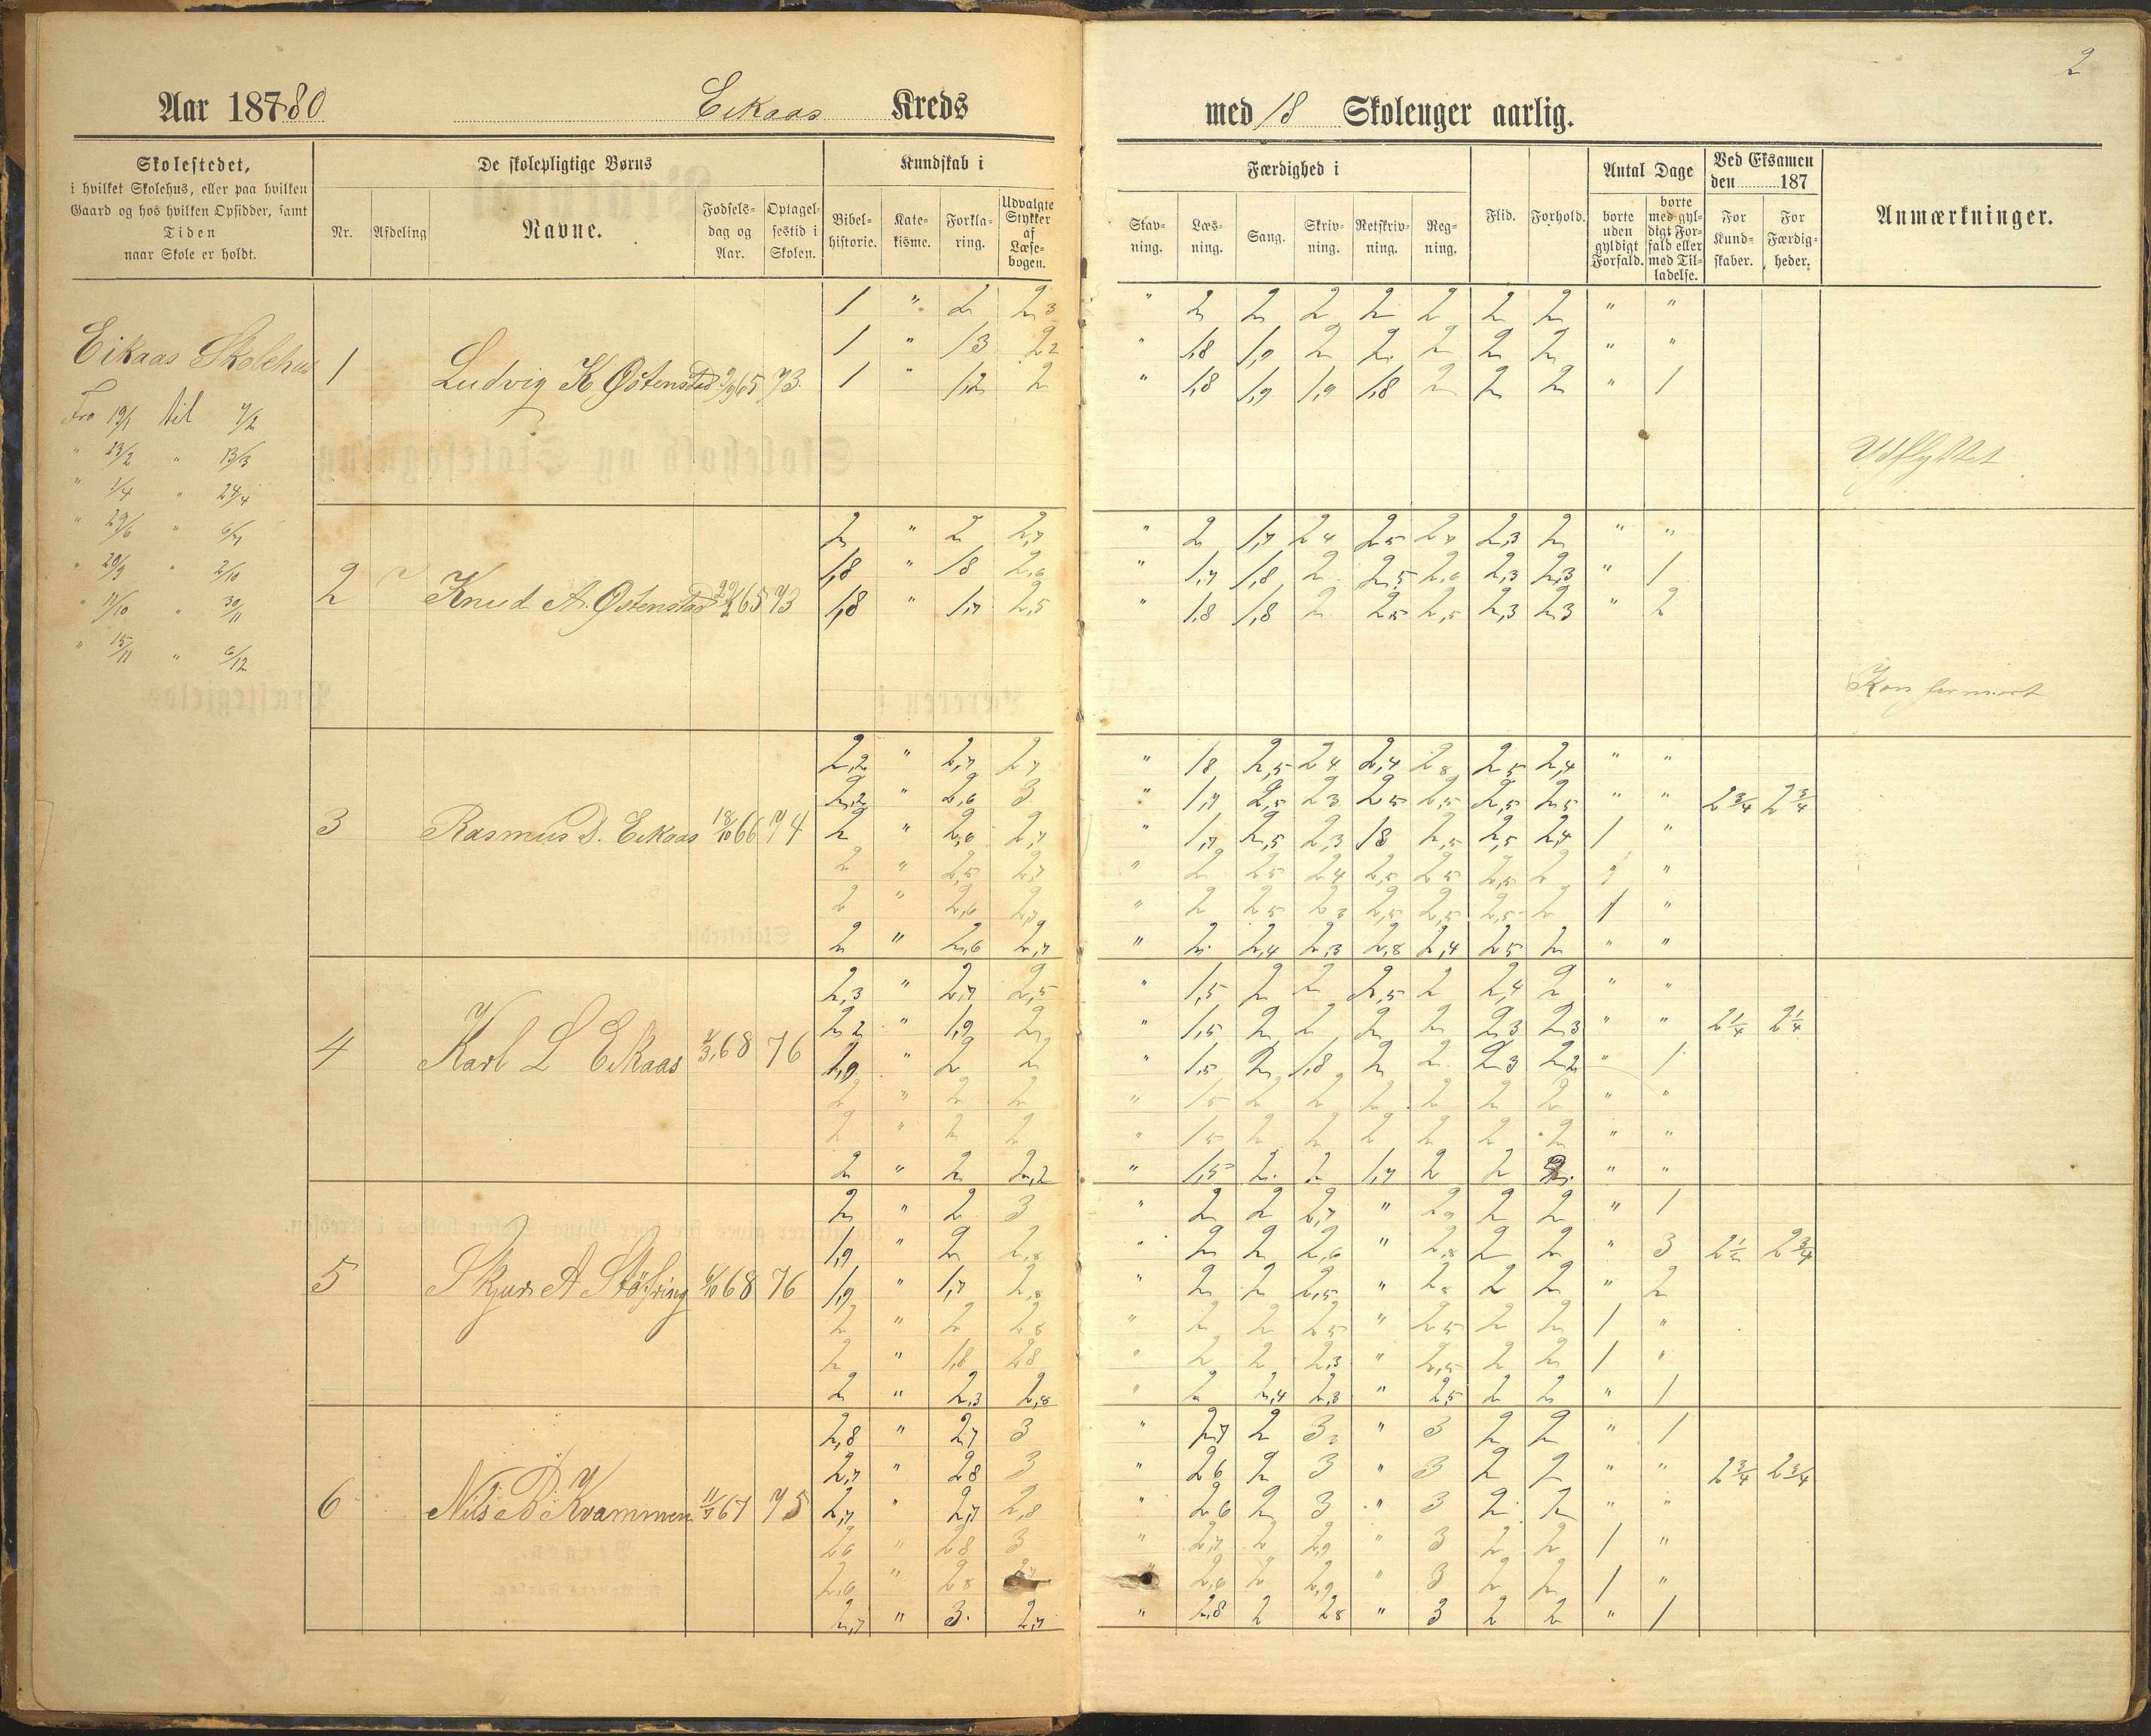 2
Aar 187880 Eikaas Kreds med 18 Skoleuger aarlig.
Skolestedet,
i hvilket Skolehus, eller paa hvilken
Gaard og hos hvilken Opsidder, samt
Tiden
naar Skole er holdt.
De skolepligtige Børns
Nr.
Afdeling
Navne.
Fødsels-
dag og
Aar.
Optagel-
sestid i
Skolen.
Kundskab i
Bibel-
historie.
Kate-
kisme.
Forkla-
ring.
Udvalgte
Stykker
af
Læse-
bogen.
Færdighed i
Stav-
ning.
Læs-
ning.
Sang.
Skriv-
ning.
Retskriv-
ning.
Reg-
ning.
Flid.
Forhold.
Antal Dage
borte
uden
gyldigt
Forfald.
borte
med gyl-
digt For-
fald eller
med Til-
ladelse.
Ved Eksamen
den 187
For
Kund-
skaber.
For
Færdig-
heder.
Anmærkninger.
Eikaas Skolehus
Fra 19/1 til 7/2
" 23/2 " 13/3
" 1/4 " 24/4
" 29/6 "
" 20/9 " 2/10
" " 30/11
" 15/11 " 6/12
1 Ludvig K Østenstad 65 73
1 " 2 2,3 " 2 2 2 2 2 2 2 " "
1 " 1,3 2,2 " 1,8 1,9 2 2 2 2 2 " "
1 " 1,2 2 " 1,8 1,9 1,9 1,8 2 2 2 " 1
Udflyttet
2 Knud A. Østenstad 65 73
2 " 2 2,7 " 2 1,7 2,4 2,5 2,7 2,3 2 " "
1,8 " 1,8 2,6 " 1,7 1,8 2 2,5 2,6 2,3 2,3 " 1
1,8 " 1,7 2,5 " 1,8 1,8 2 2,5 2,5 2,3 2,3 " 2
Konfirmert
3 Rasmus D. Eikaas 18/10 66 74
2,2 " 2,7 2,7 " 1,8 2,5 2,4 2,4 2,8 2,5 2,4 " "
2,2 " 2,6 3 " 1,7 2,5 2,3 2,5 2,5 2,5 2,5 " " 2 3/4 2 3/4
2 " 2,6 2,7 " 1,7 2,5 2,3 1,8 2,5 2,5 2,4 1 "
2 " 2,5 2,7 " 2 2,5 2,4 2,5 2,5 2,5 2 "
2 " 2,6 2,7 " 2 2,5 2,3 2,5 2,5 2,5 2 1 "
2 " 2,6 2,7 " 2 2,4 2,3 2,8 2,4 2,5 2 " "
4 Karl L Eikaas 68 76
2,3 " 2,7 2,5 " 1,5 2 2 2,5 2 2,4 2 " "
2,2 " 1,9 2 " 1,5 2 2 2 2 2,3 2,3 " " 2 1/4 2 1/4
1,9 " 2 2 " 1,5 2 1,8 2 2 2,3 2,2 " 1
2 " 2 2 " 1,5 2 2 2 2 2 2 " "
2 " 2 2 " 1,5 2 2 2 2 2 2 " "
2 " 2 2,2 " 1,5 2 2 1,7 2 2 2 " "
5 Skjur A Støfring 68 76
2 " 2 3 " 2 2 2,7 " 2,9 2 2 " 1
1,9 " 2 2,8 " 2 2 2,6 " 2,8 2 2 " 3 2 1/2 2 3/4
1,9 " 1,7 2,8 " 2 2 2,5 " 2,8 2 2 " 2
2 " 2 2,8 " 2 2 2,5 " 2,5 2 2 1 "
2 " 1,8 2,8 " 2 2 2,3 " 2,5 2 2 1 "
2 " 2,3 2,8 " 2 2,4 2,3 " 2,5 2 2 " 1
6 Nils Kvammen 67 75
2,8 " 2,7 3 " 2,7 2 3 " 3 2 2 " 1
2,7 " 2,8 3 " 2,6 2 3 " 3 2 2 " " 2 3/4 2 3/4
2,7 " 2,7 2,8 " 2,6 2 3 " 3 2 2 " "
2,6 " 2,8 3 " 2,7 2 2,9 " 3 2 2 1 "
2,6 " 2,8 " 2,6 2 2,9 " 3 2 2 1 "
2,7 " 3 2,7 " 2,8 2 2,8 " 3 2 2 " 1